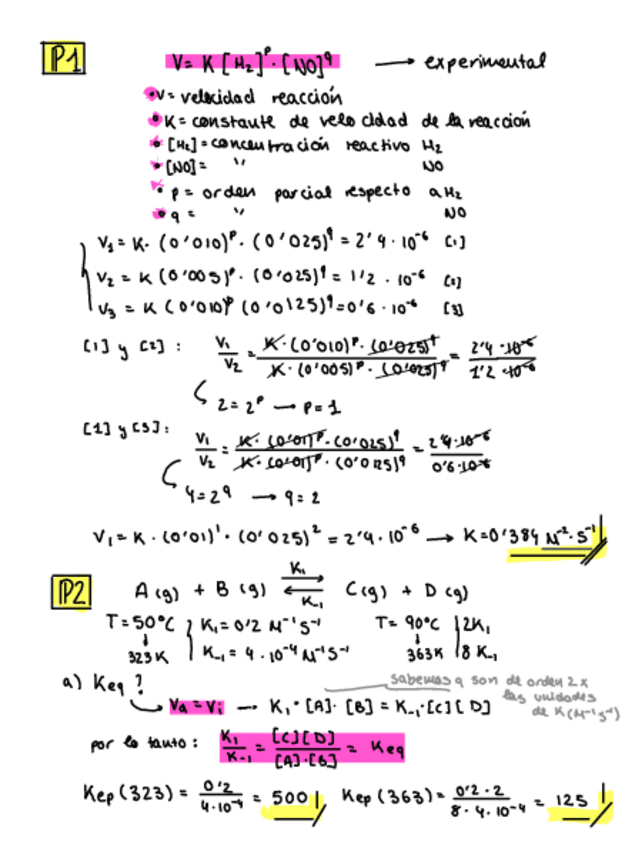 P1
V = K [H₂]ᵖ · [NO]ᑫ → experimental
• V = velocidad reacción
• K = constante de velocidad de la reacción
• [H₂] = concentración reactivo H₂
• [NO] = " NO
• p = orden parcial respecto a H₂
• q = " NO
V₁ = K · (0'010)ᵖ · (0'025)ᑫ = 2'4 · 10⁻⁶ [1]
V₂ = K (0'005)ᵖ · (0'025)ᑫ = 1'2 · 10⁻⁶ [2]
V₃ = K (0'010)ᵖ (0'0125)ᑫ = 0'6 · 10⁻⁶ [3]
[1] y [2] : V₁/V₂ = K · (0'010)ᵖ · (0'025)ᑫ / K · (0'005)ᵖ · (0'025)ᑫ = 2'4 · 10⁻⁶ / 1'2 · 10⁻⁶
2 = 2ᵖ → p = 1
[1] y [3] : V₁/V₂ = K · (0'01)ᵖ · (0'025)ᑫ / K · (0'01)ᵖ · (0'0125)ᑫ = 2'4 · 10⁻⁶ / 0'6 · 10⁻⁶
4 = 2ᑫ → q = 2
V₁ = K · (0'01)¹ · (0'025)² = 2'4 · 10⁻⁶ → K = 0'384 M⁻² · s⁻¹
P2
A (g) + B (g) ⇌ C (g) + D (g)
K₁
K₋₁
T = 50°C K₁ = 0'2 M⁻¹ s⁻¹ T = 90°C 2K₁
↓ ↓
323 K K₋₁ = 4 · 10⁻⁴ M⁻¹ s⁻¹ 363 K 8 K₋₁
a) Keq ?
sabemos q son de orden 2 x
las unidades
de K (M⁻¹ s⁻¹)
Vd = Vi → K₁ · [A] · [B] = K₋₁ · [C] [D]
por lo tanto : K₁/K₋₁ = [C] [D] / [A] · [B] = Keq
Kep (323) = 0'2 / 4 · 10⁻⁴ = 500 Kep (363) = 0'2 · 2 / 8 · 4 · 10⁻⁴ = 125